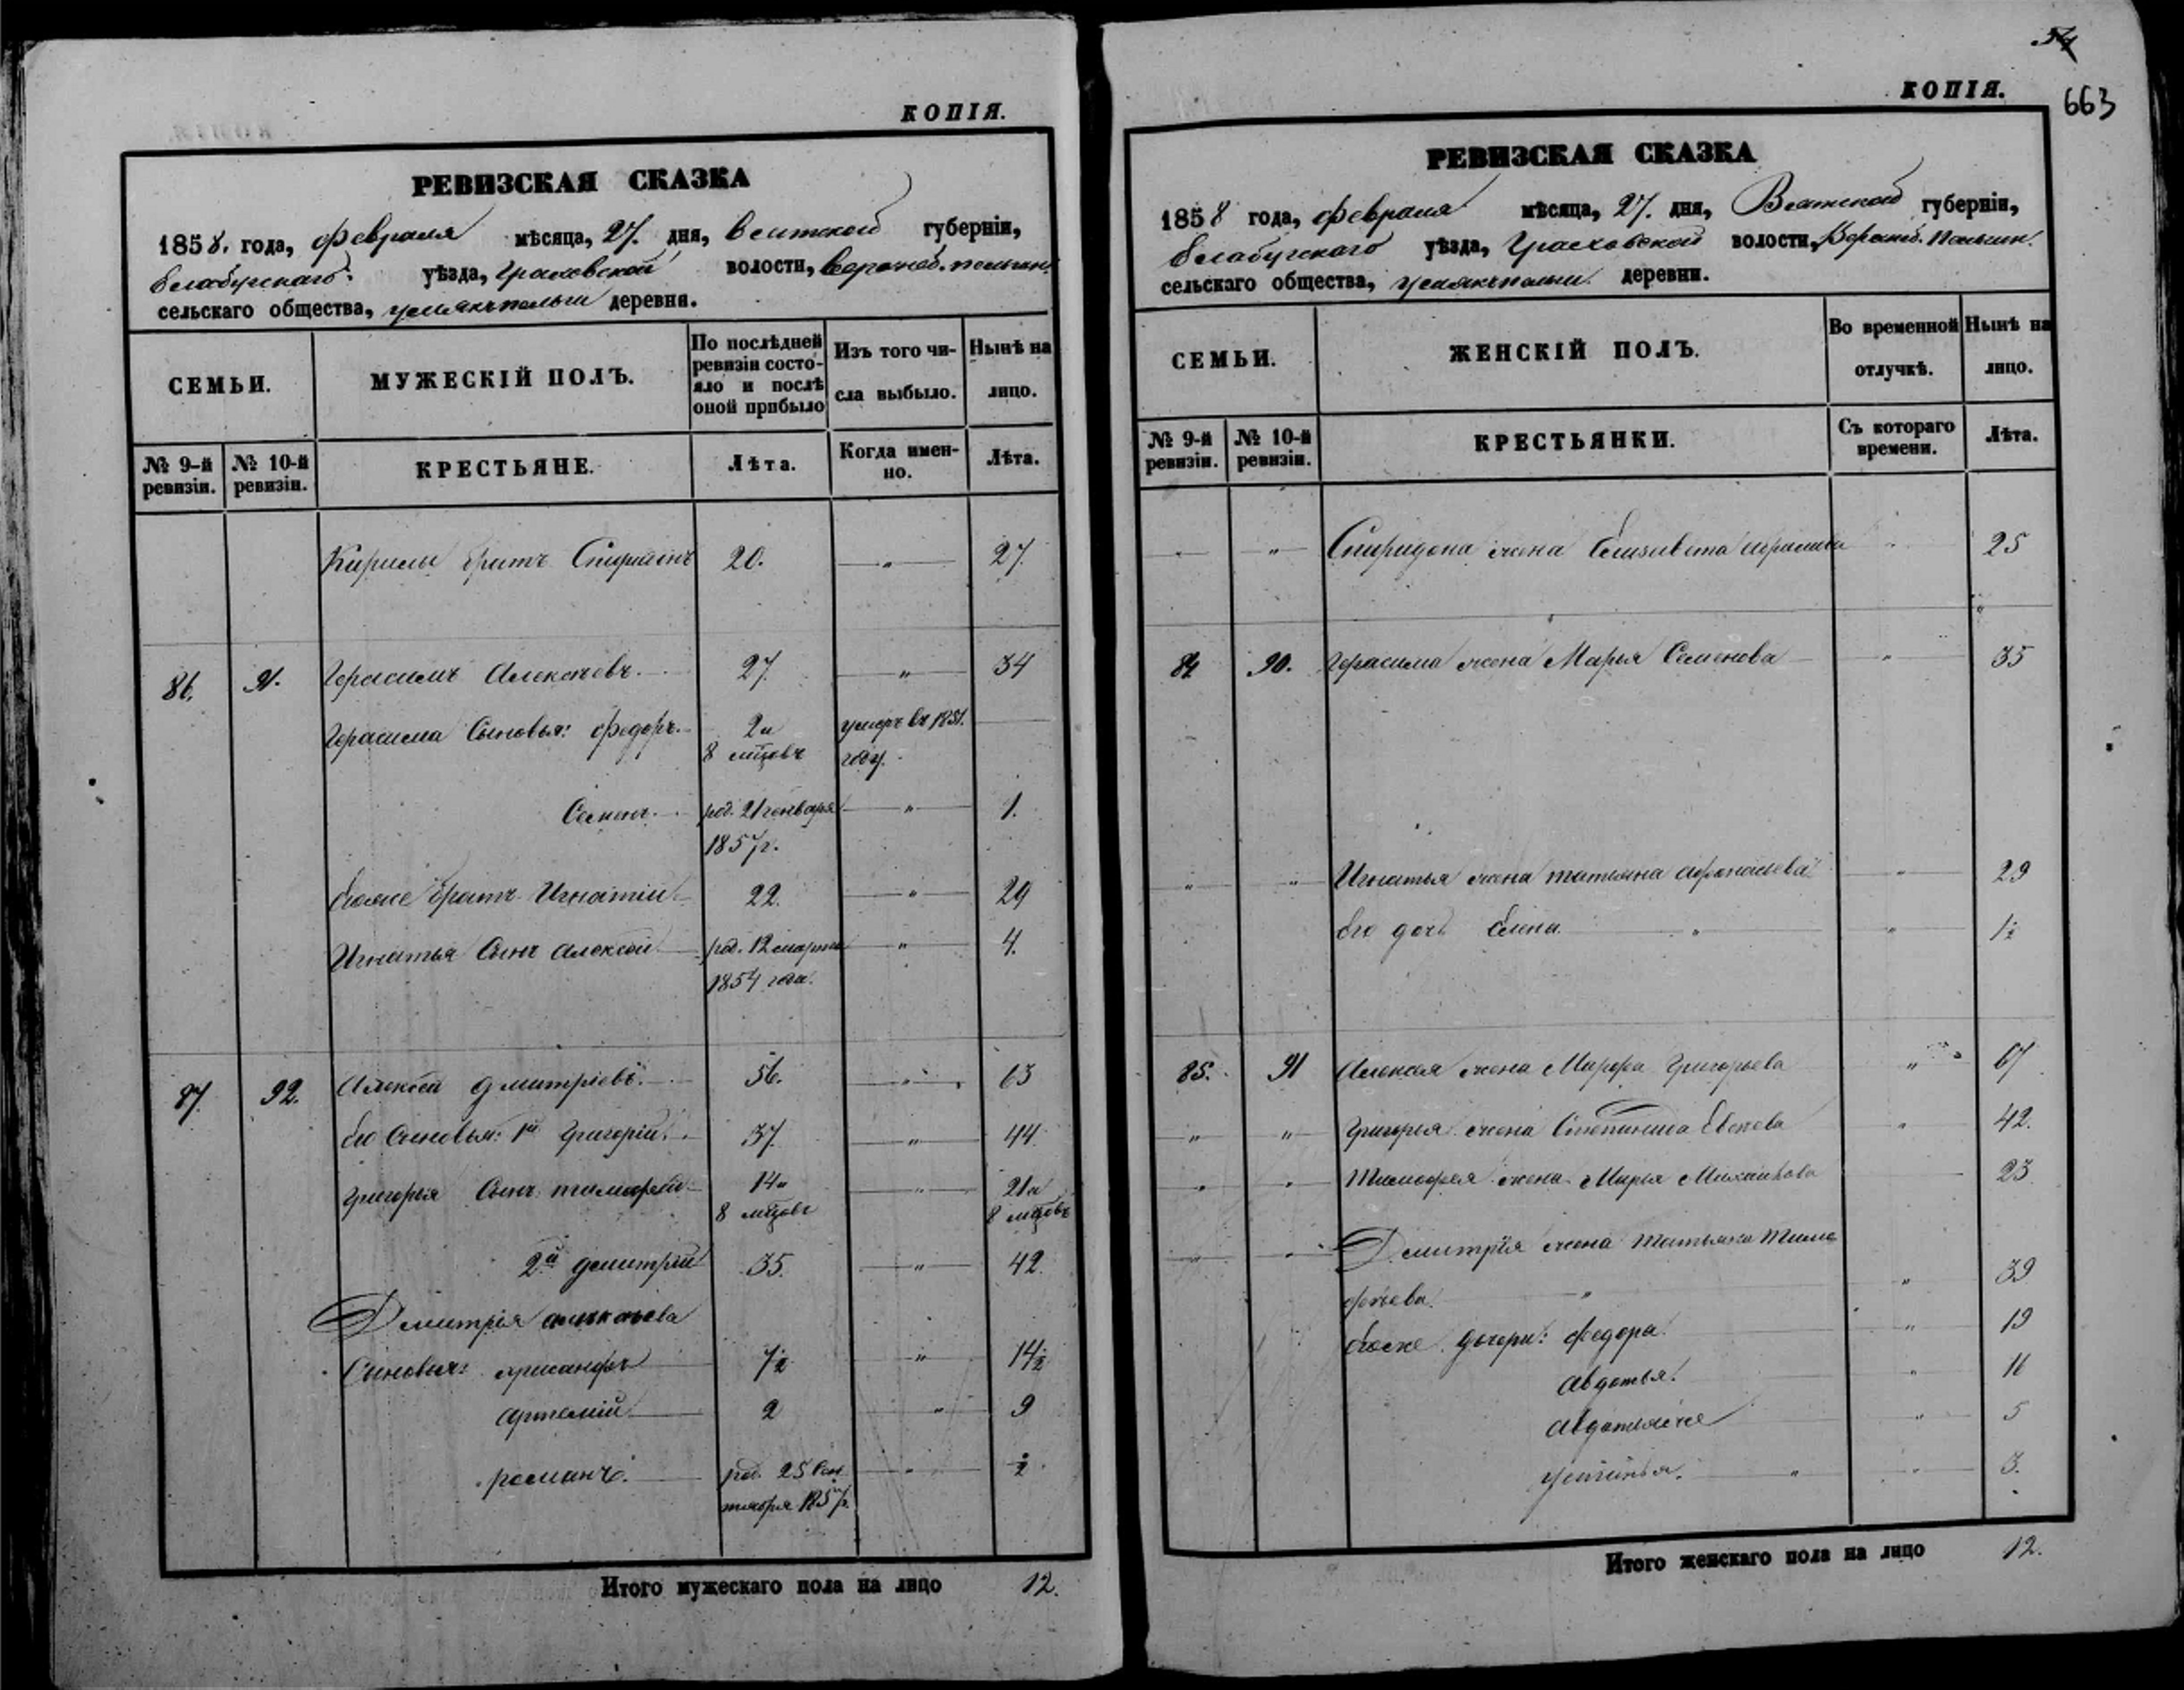 КОПІЯ.
РЕВИЗСКАЯ СКАЗКА
1858. года, февраля мѣсяца, 27. дня, Вятской губерніи,
Елабугскаго уѣзда, Граховской волости,
сельскаго общества, деревни.
СЕМЬИ.
МУЖЕСКІЙ ПОЛЪ.
По послѣдней ревизіи состояло и послѣ оной прибыло
Изъ того числа выбыло.
Нынѣ на лицо.
№ 9-й ревизіи.
№ 10-й ревизіи.
КРЕСТЬЯНЕ.
Лѣта.
Когда именно.
Лѣта.
Кирилы братъ 20. " 27.
86. 91. Герасимъ Алексѣевъ. 27. " 34
Герасима Сыновья: Федоръ. 2 и умеръ въ 1851.
8 мцовъ году.
Семенъ. род. 21 генваря " 1.
1857 г.
Егоже братъ Игнатій 22. " 29
Игнатья Сынъ Алексѣй род. 12 марта " 4.
1854 года.
87. 92. Алексѣй Дмитріевъ. 56. " 63
Его Сыновья: 1й Григорій. 37. " 44
Григорья Сынъ Тимофей 14 и " 21 и
8 мцовъ 8 мцовъ
2й Дмитрій 35. " 42.
Дмитрія Алексѣева
Сыновья: Хрисанфъ 7½ " 14½
Артемій 2 " 9
Романъ. род. 25 Сен " ½
тября 1857 г.
Итого мужескаго пола на лицо 12.
54
663
КОПІЯ.
РЕВИЗСКАЯ СКАЗКА
1858 года, февраля мѣсяца, 27. дня, Вятской губерніи,
Елабугскаго уѣзда, Граховской волости,
сельскаго общества, деревни.
СЕМЬИ.
ЖЕНСКІЙ ПОЛЪ.
Во временной отлучкѣ.
Нынѣ на лицо.
№ 9-й ревизіи.
№ 10-й ревизіи.
КРЕСТЬЯНКИ.
Съ котораго времени.
Лѣта.
" " Спиридона жена Елизавета " 25
84 90. Герасима жена Марья Семенова " 35
" " Игнатья жена Татьяна Афонасьева " 29
Его дочь Елена " " 1½
85. 91 Алексѣя жена Марфа Григорьева " 67
" " Григорья жена Степанида " 42.
" " Тимофея жена Марья Михайлова 23
" " Дмитрія жена Татьяна Тимо
фѣева. " " 39
Егоже дочери: Федора " 19
Авдотья. " 16
Авдотьяже " 5
Устинья. " " 3.
Итого женскаго пола на лицо 12.